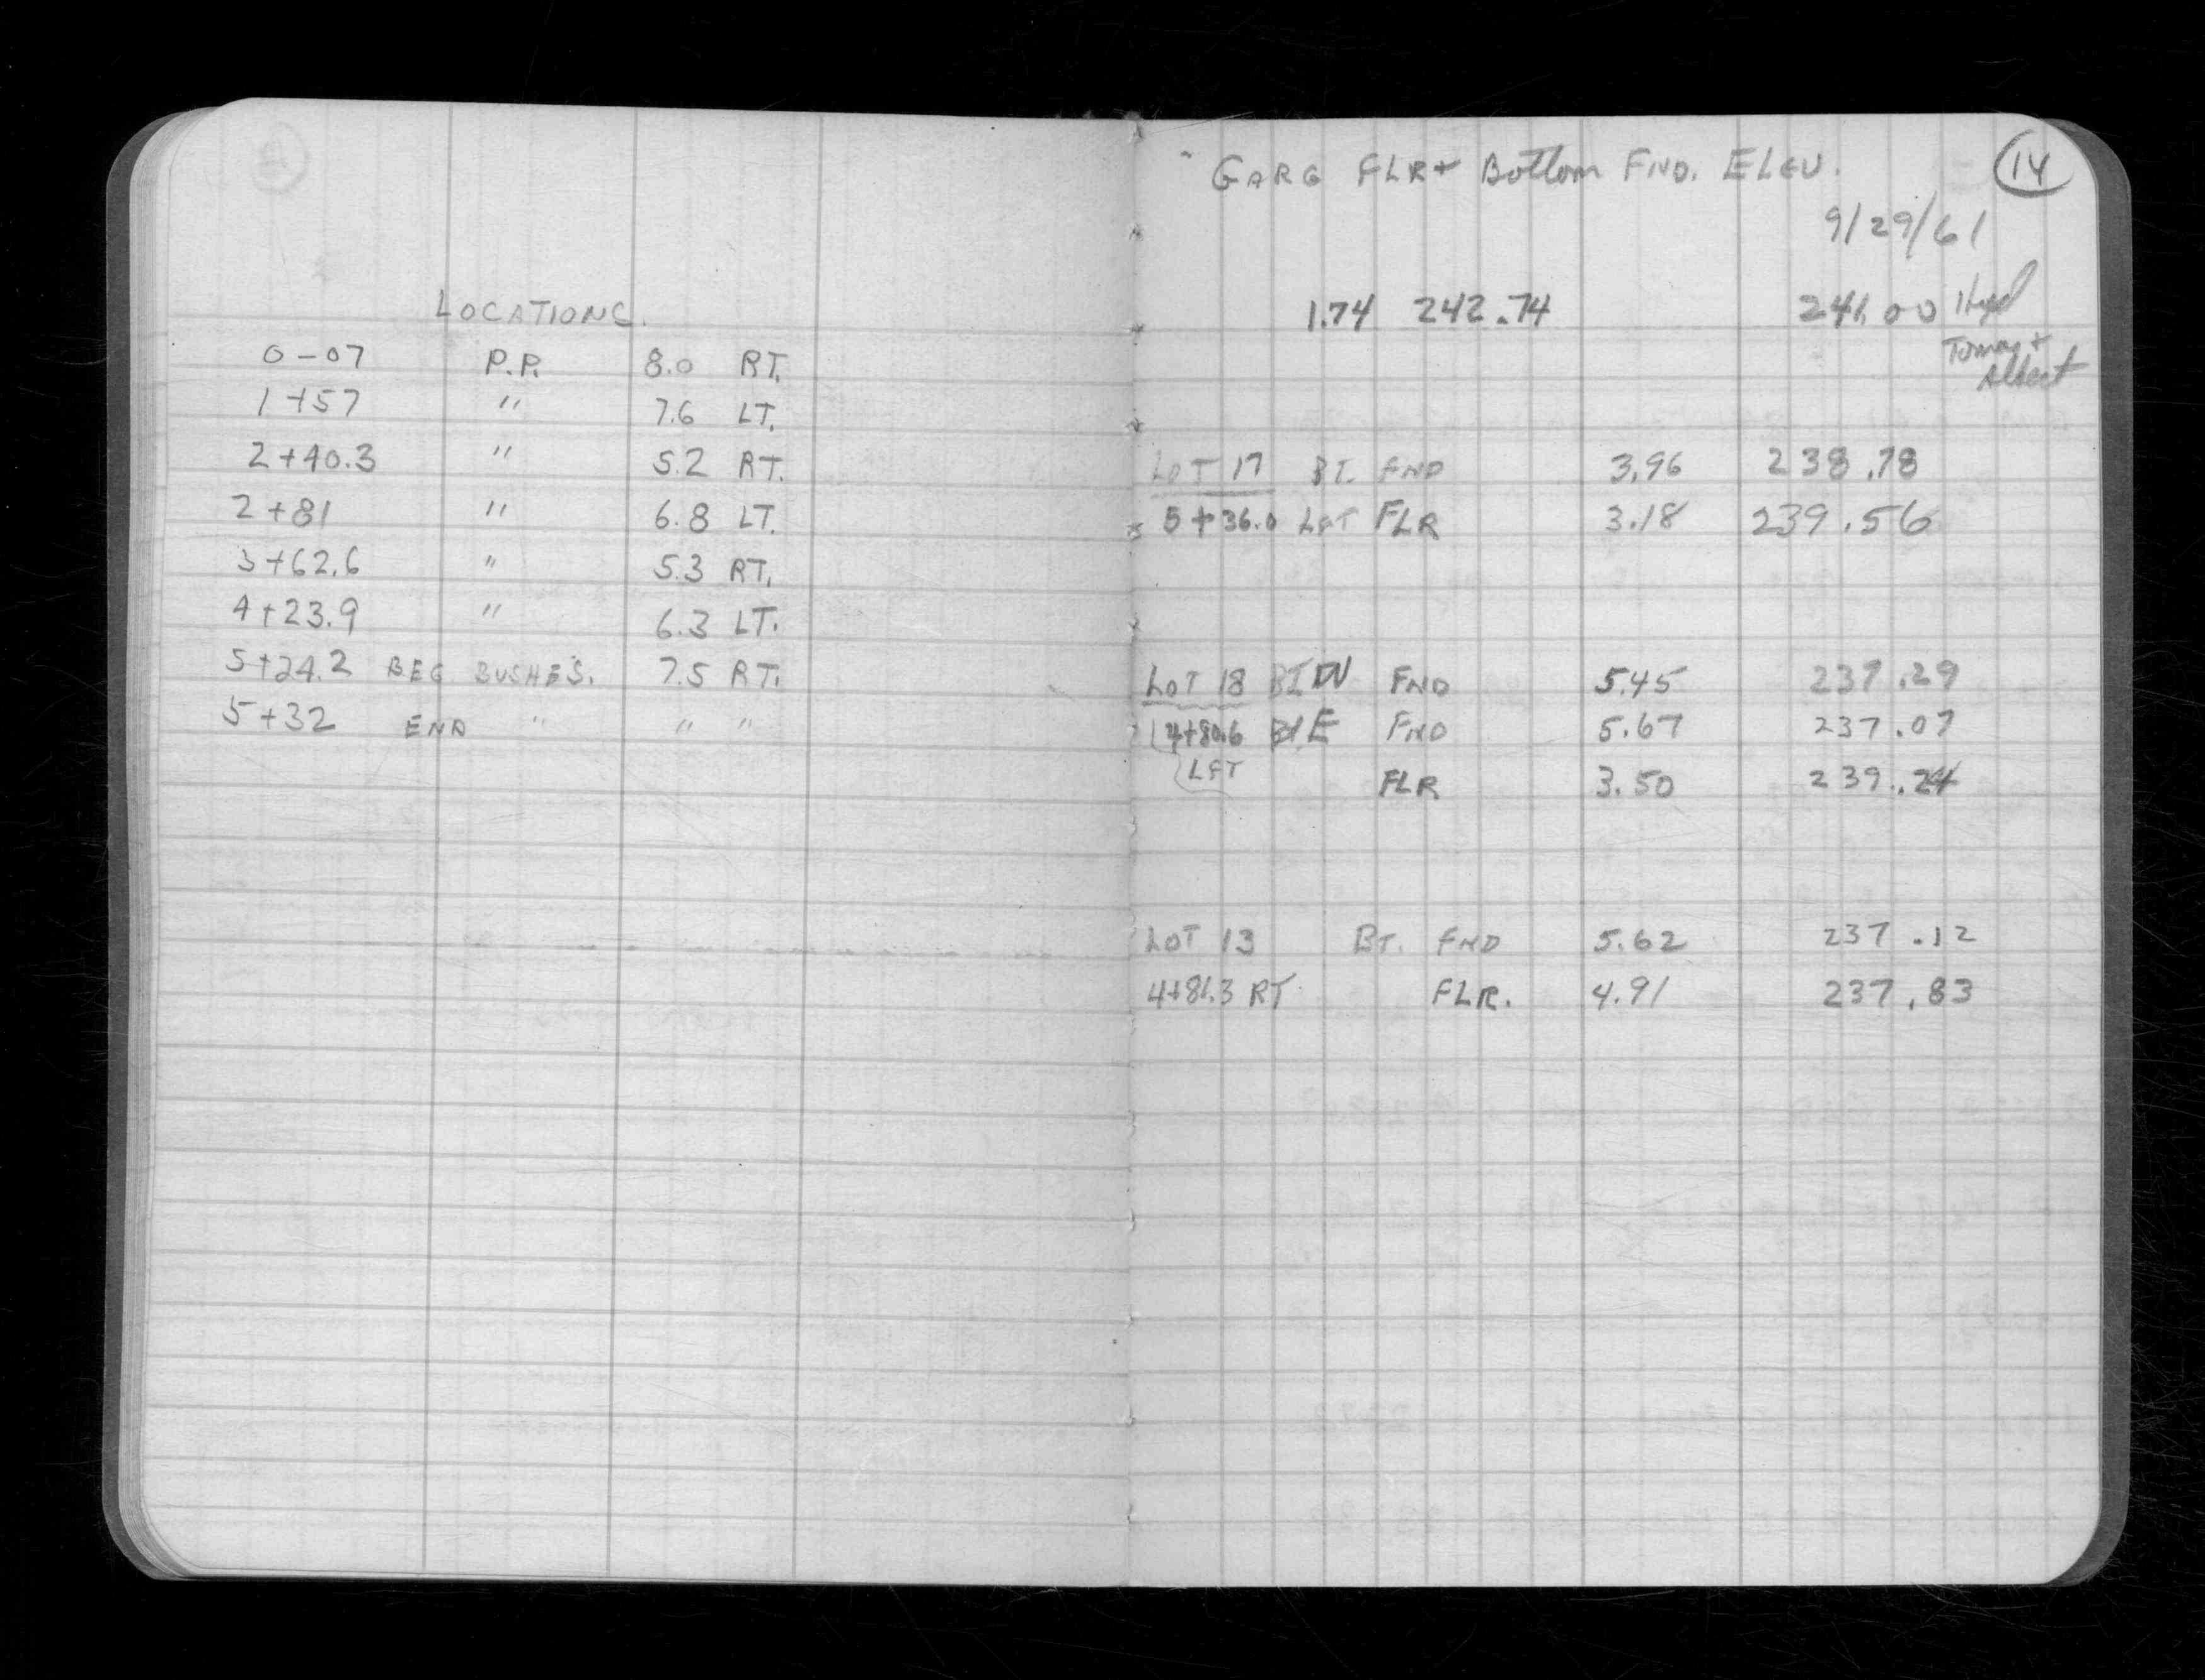 LOCATIONS.
0-07 P.P. 8.0 RT.
1+57 " 7.6 LT.
2+40.3 " 5.2 RT.
2+81 " 6.8 LT.
3+62.6 " 5.3 RT.
4+23.9 " 6.3 LT.
5+24.2 BEG BUSHES. 7.5 RT.
5+32 END " " "
GARG FLR+ Bottom FND. ELEV. 14
9/29/61
1.74 242.74 241.00 Hyd
+
Albert
LOT 17 BT. FND 3.96 238.78
5+36.0 LFT FLR 3.18 239.56
LOT 18 BT W FND 5.45 237.29
4+80.6 E FND 5.67 237.07
LFT FLR 3.50 239.24
LOT 13 BT. FND 5.62 237.12
4+81.3 RT FLR. 4.91 237.83